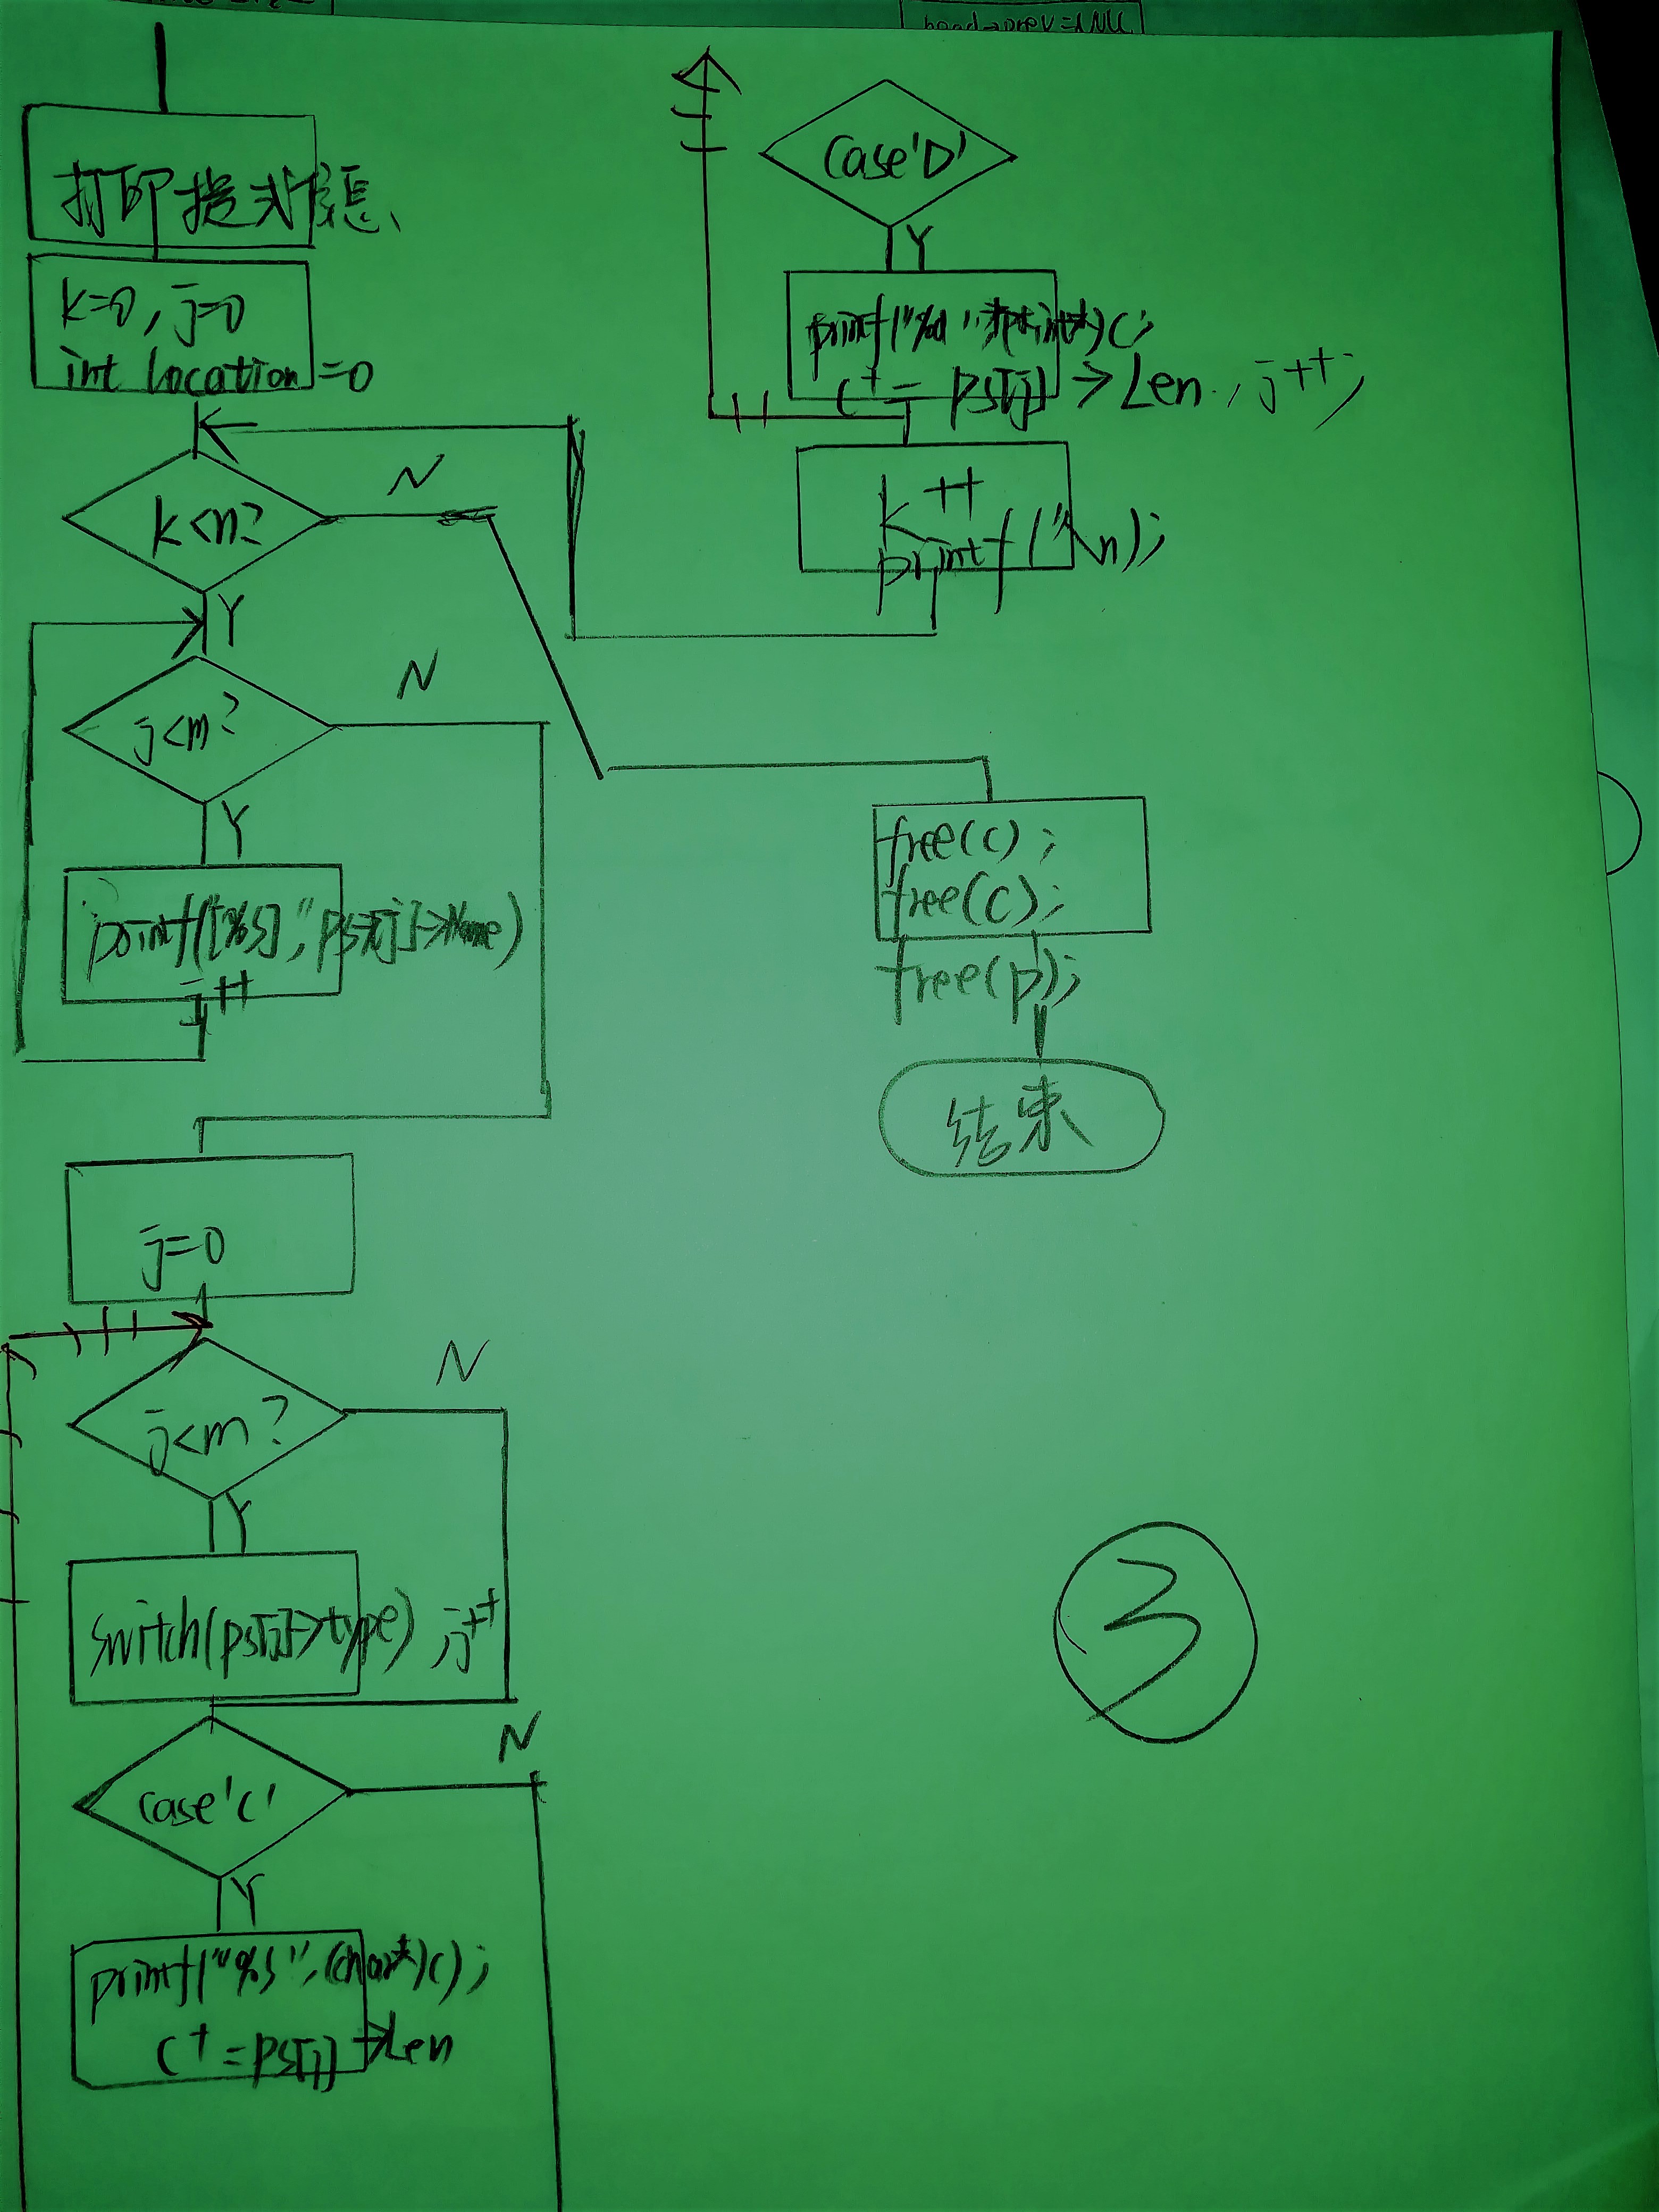 head→prev=NULL
打印提式信息、
k=0, j=0
int location=0
k<n?
N
Y
j<m?
N
Y
printf("[%s]", ps[j]->Name)
j++
j=0
j<m?
N
Y
switch(ps[j]->type) j++
case'C'
N
Y
printf("%s",(char*)c);
c+=ps[j]->Len
Case'D'
Y
printf("%d",
c+= ps[j] ->Len, j++;
k++
printf("\n);
free(c);
free(c);
free(p);
结束
3